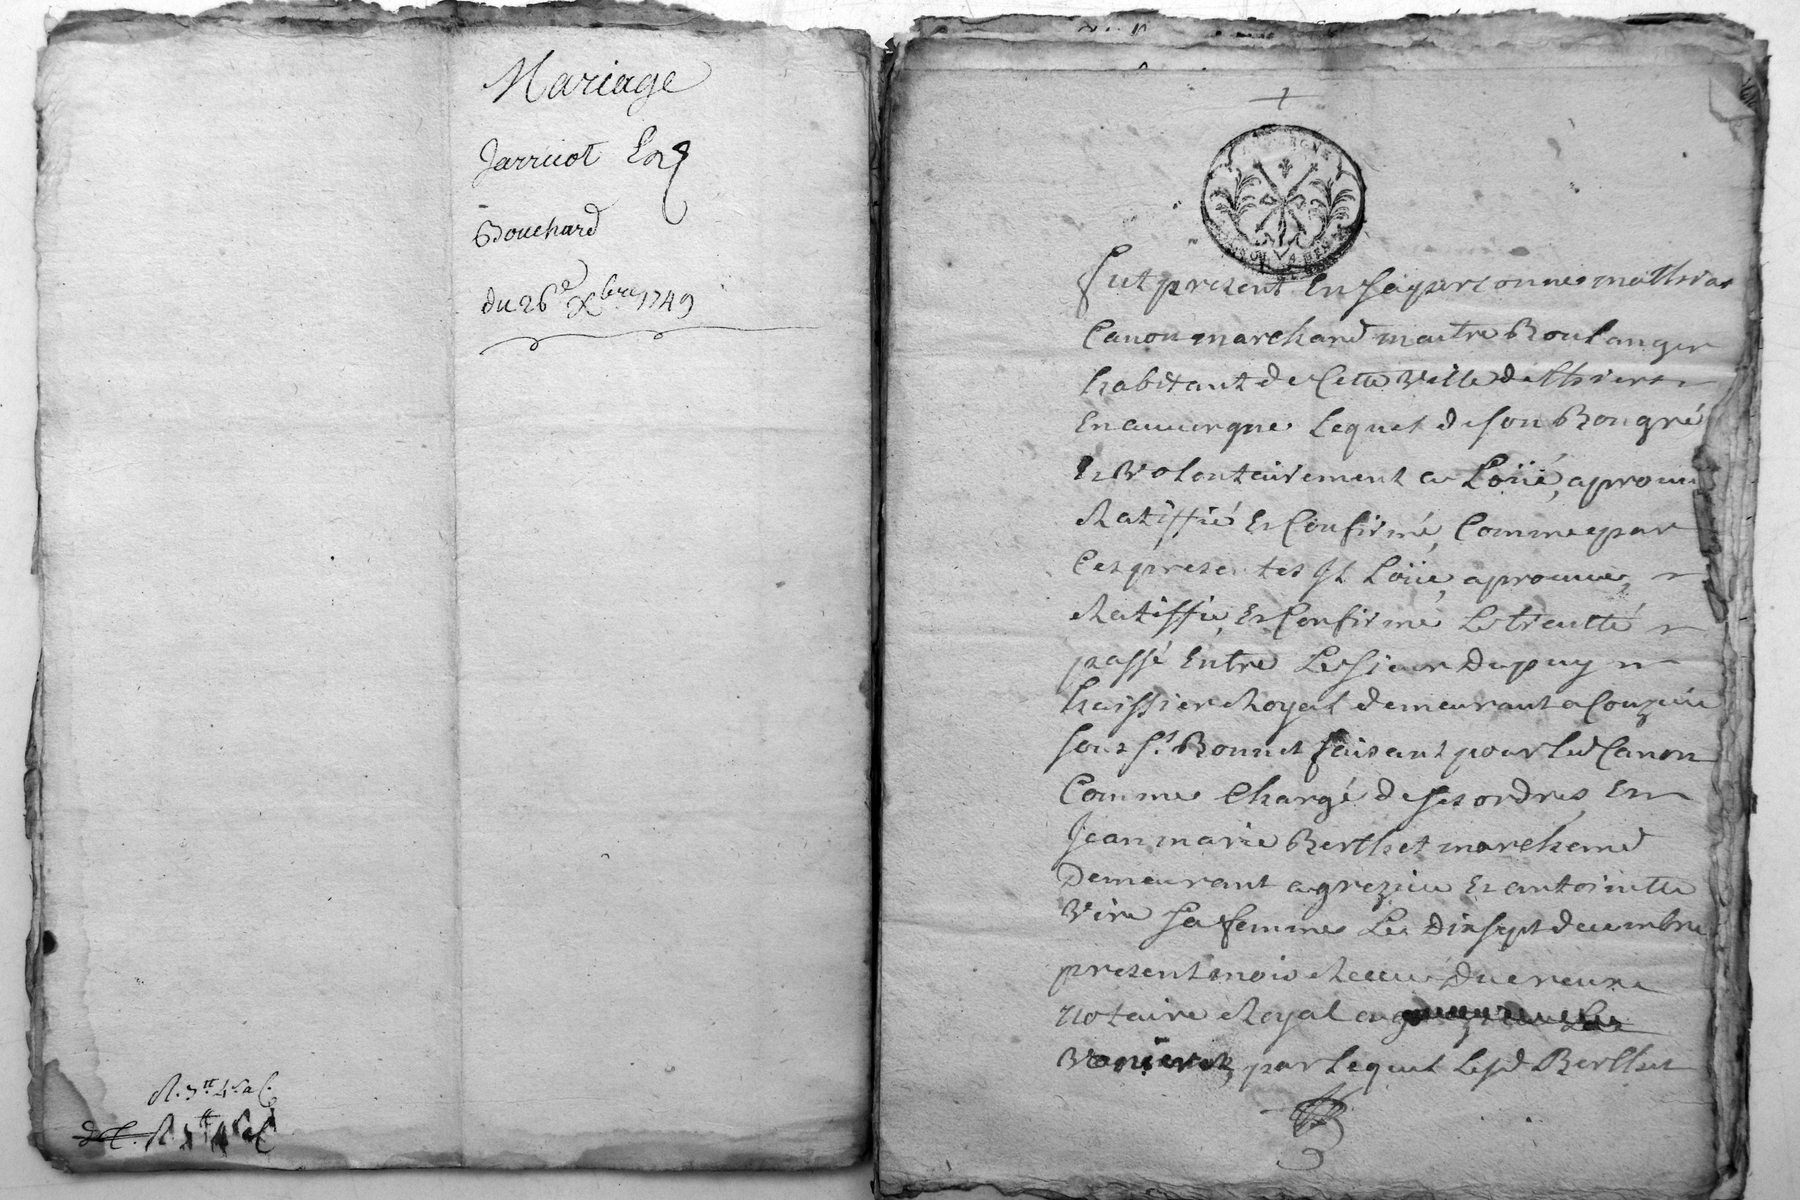 Mariage
Jarricot Et
Bouchard
du 26e Xbre 1749
R. 3tt
+
Fut présent En sa personne mathieu
Canon marchand maitre Boulanger
habitant de Cette Ville de thiers
En auvergne Lequel de son Bon gré
Et Volontairement a Loüé, aprouvé
Ratiffié Et Confirmé, Comme par
Ces presentes Il Loüe, aprouve,
Ratiffie, Et Confirme Le traitté
passé Entre Le Sieur Dupuy
huissier Royal demeurant a Couzieu
sous St. Bonnet faisant pour led Canon
Comme Chargé de ses ordres, Et
Jean marie Berthet marchand
Demeurant a grezieu Et antoinette
Vire sa femme Le Dix sept decembre
present mois Receu Ducreux
Notaire Royal a
par Lequel Lesd Berthet